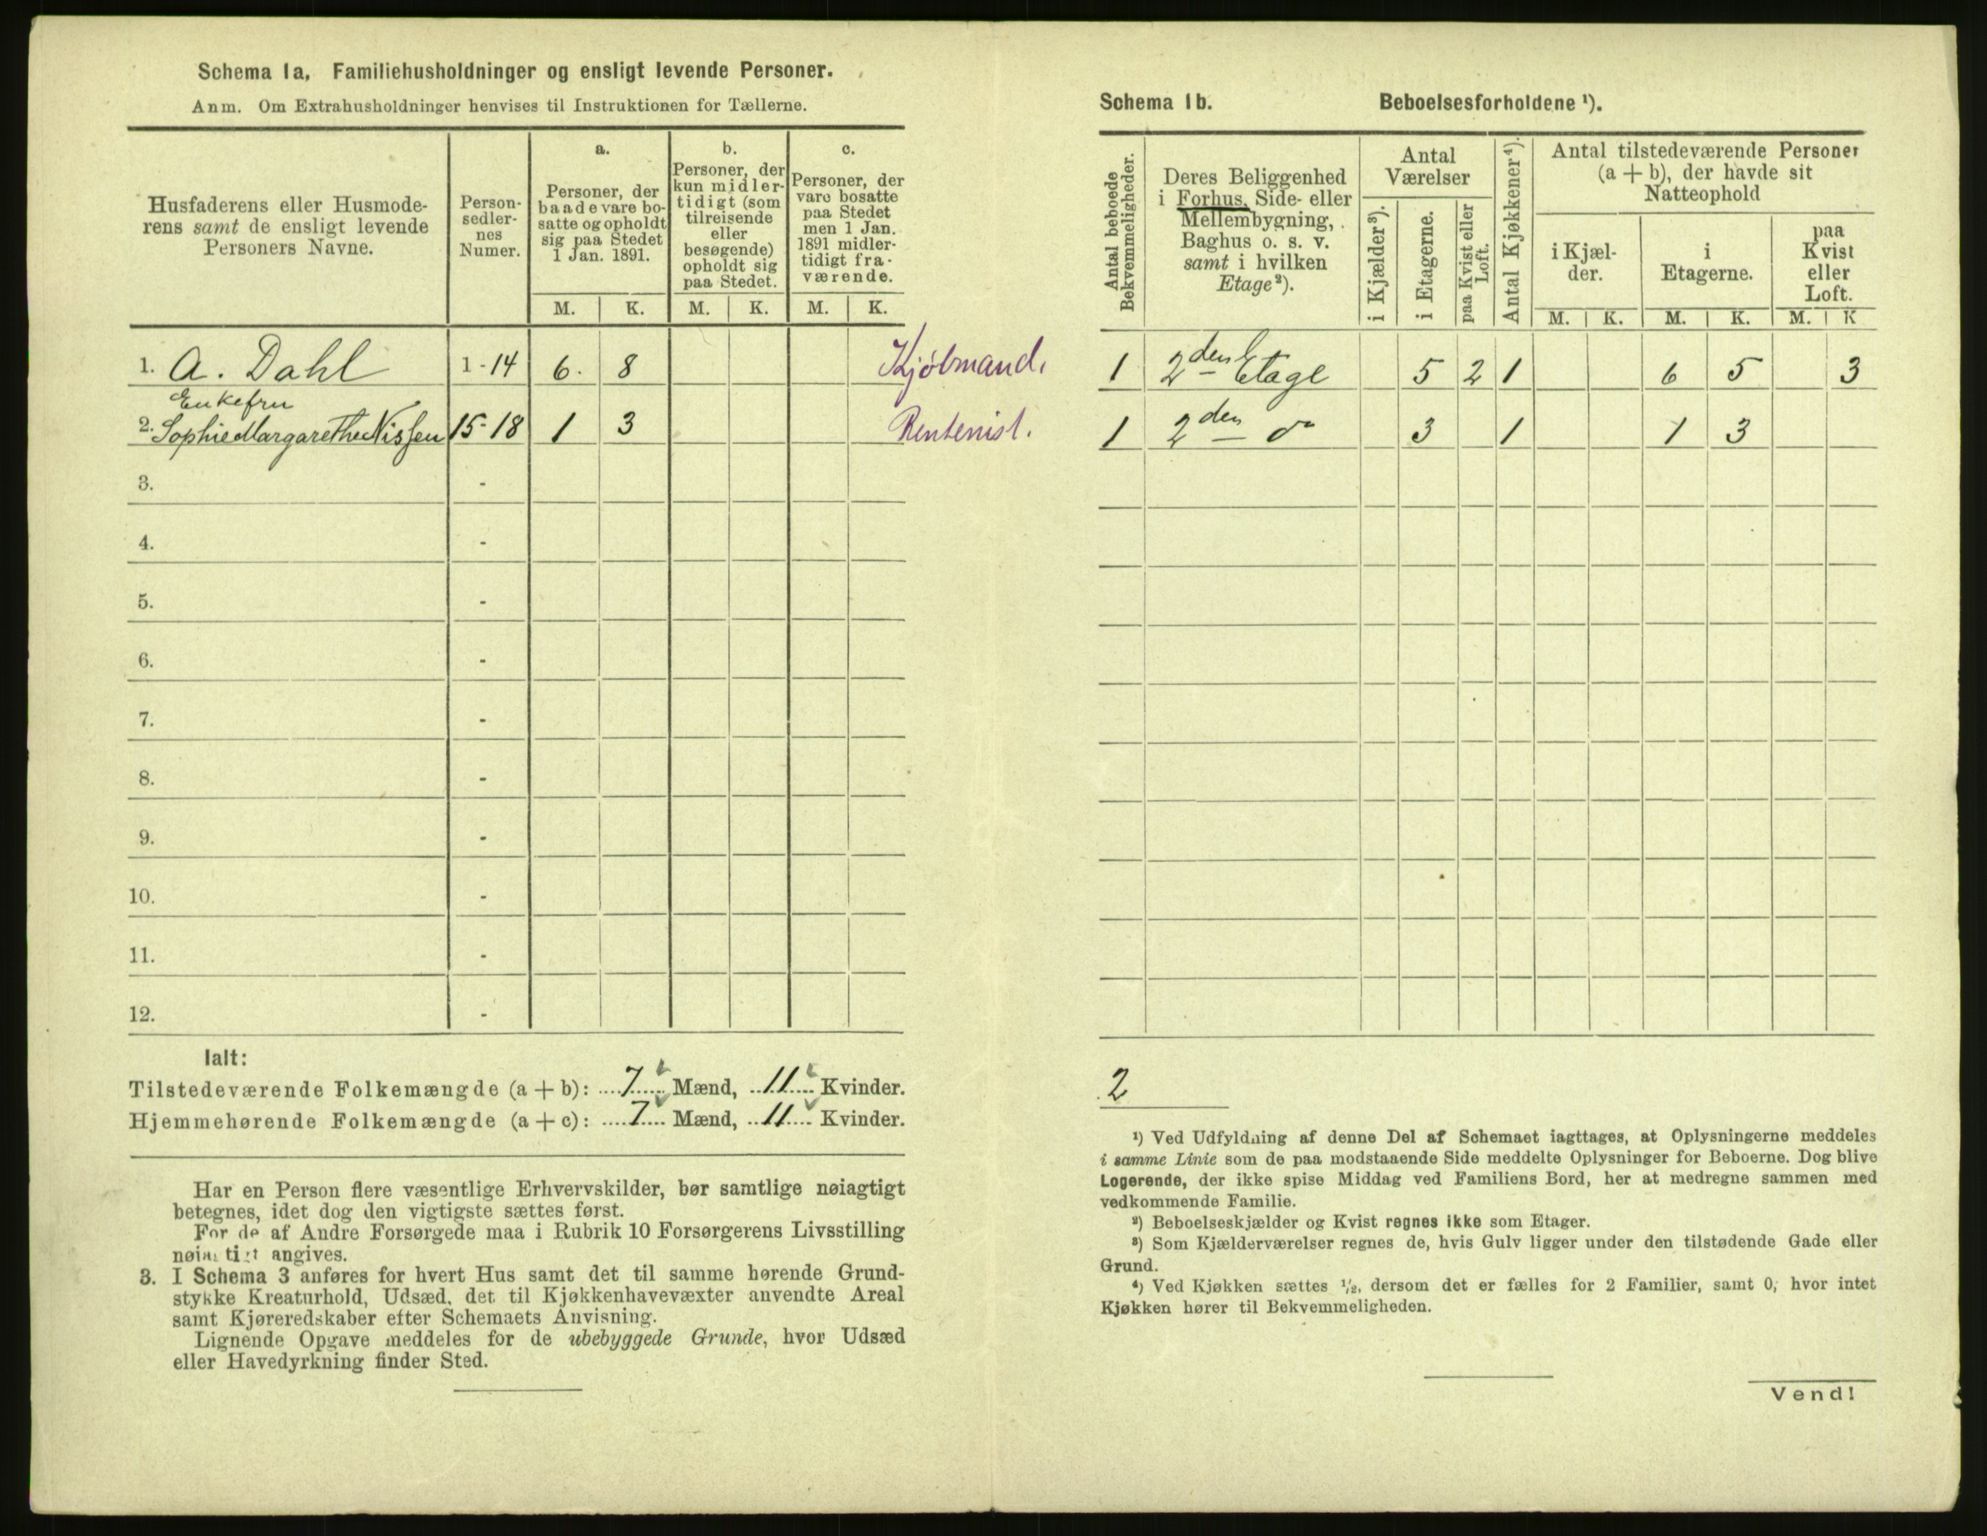 Schema 1a, Familiehusholdninger og ensligt levende Personer.
Anm. Om Extrahusholdninger henvises til Instruktionen for Tællerne.
Husfaderens eller Husmode-
rens samt de ensligt levende
Personers Navne.
Person-
sedler-
nes
Numer.
a.
Personer, der
baade vare bo-
satte og opholdt
sig paa Stedet
1 Jan. 1891.
b.
Personer, der
kun midler-
tidigt (som
tilreisende
eller
besøgende)
opholdt sig
paa Stedet.
c.
Personer, der
vare bosatte
paa Stedet
men 1 Jan.
1891 midler-
tidigt fra-
værende.
M. K. M. K. M. K.
1. A. Dahl 1-14 6. 8 Kjøbmand.
Enkefru
2. Sophie Margarethe Nissen 15-18 1 3 Rentenist.
3. -
4. -
5. -
6. -
7. -
8. -
9. -
10. -
11. -
12. -
Ialt:
Tilstedeværende Folkemængde (a + b): 7 Mænd, 11 Kvinder.
Hjemmehørende Folkemængde (a + c): 7 Mænd, 11 Kvinder.
Har en Person flere væsentlige Erhvervskilder, bør samtlige nøiagtigt
betegnes, idet dog den vigtigste sættes først.
For de af Andre Forsørgede maa i Rubrik 10 Forsørgerens Livsstilling
nøiagtigt angives.
3. I Schema 3 anføres for hvert Hus samt det til samme hørende Grund-
stykke Kreaturhold, Udsæd, det til Kjøkkenhavevæxter anvendte Areal
samt Kjøreredskaber efter Schemaets Anvisning.
Lignende Opgave meddeles for de ubebyggede Grunde, hvor Udsæd
eller Havedyrkning finder Sted.
Schema 1b. Beboelsesforholdene ¹).
Antal beboede
Bekvemmeligheder.
Deres Beliggenhed
i Forhus, Side- eller
Mellembygning,
Baghus o. s. v.
samt i hvilken
Etage²).
Antal
Værelser
i Kjælder³).
i Etagerne.
paa Kvist eller
Loft.
Antal Kjøkkener⁴).
Antal tilstedeværende Personer
(a + b), der havde sit
Natteophold
i Kjæl-
der.
i
Etagerne.
paa
Kvist
eller
Loft.
M. K. M. K. M. K
1 2den Etage 5 2 1 6 5 3
1 2den do 3 1 1 3
2
¹) Ved Udfyldning af denne Del af Schemaet iagttages, at Oplysningerne meddeles
i samme Linie som de paa modstaaende Side meddelte Oplysninger for Beboerne. Dog blive
Logerende, der ikke spise Middag ved Familiens Bord, her at medregne sammen med
vedkommende Familie.
²) Beboelseskjælder og Kvist regnes ikke som Etager.
³) Som Kjælderværelser regnes de, hvis Gulv ligger under den tilstødende Gade eller
Grund.
⁴) Ved Kjøkken sættes ¹/₂, dersom det er fælles for 2 Familier, samt 0, hvor intet
Kjøkken hører til Bekvemmeligheden.
Vend!